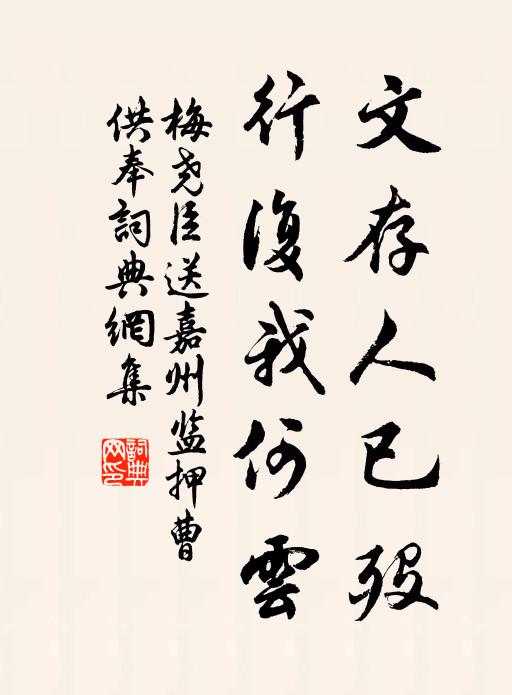 文存人已歿
行復我何雲
梅尧臣送嘉州监押曹
供奉詞典網集
詞典網印